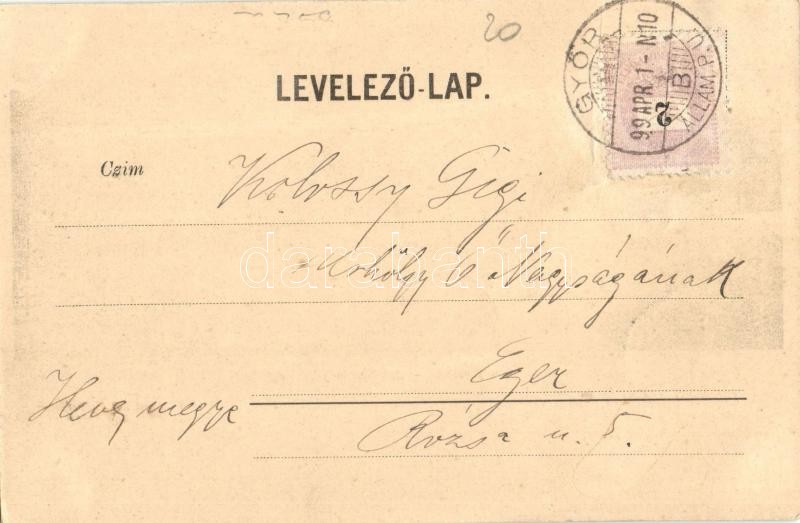 20
GYŐR
99 APR. 1 - N10
B
ÁLLAM. P. U.
2
LEVELEZŐ-LAP.
Czim
Kolossy Gigi
Úrhölgy Ő Nagyságának
Eger
Heves megye
Rózsa u. 5.
darabanth